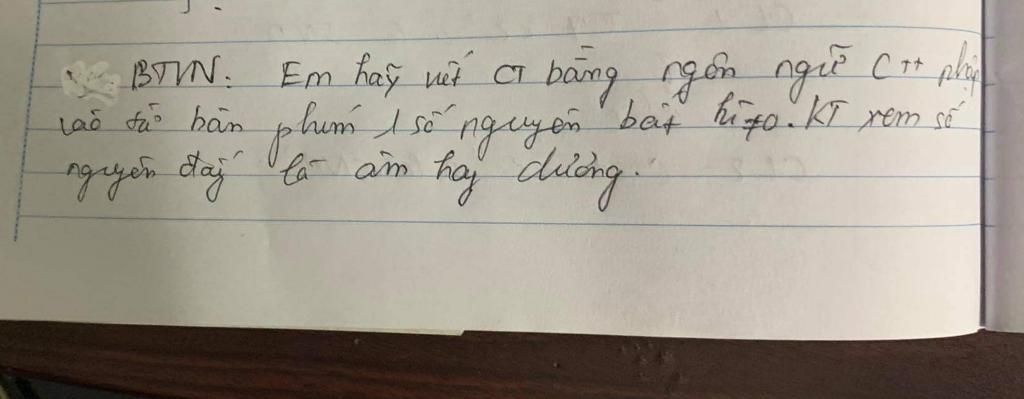 BTVN: Em hãy viết CT bằng ngôn ngữ C++ nhập
vào từ bàn phím 1 số nguyên bất kì ≠0. KT xem số
nguyên đấy là âm hay dương.